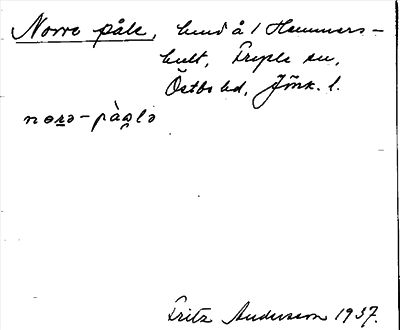 Norre påle, lund å 1 Hammars-
hult, Fryele sn,
Östbo hd, Jönk. l.
norə-pàlə
Fritz Andersson 1937.